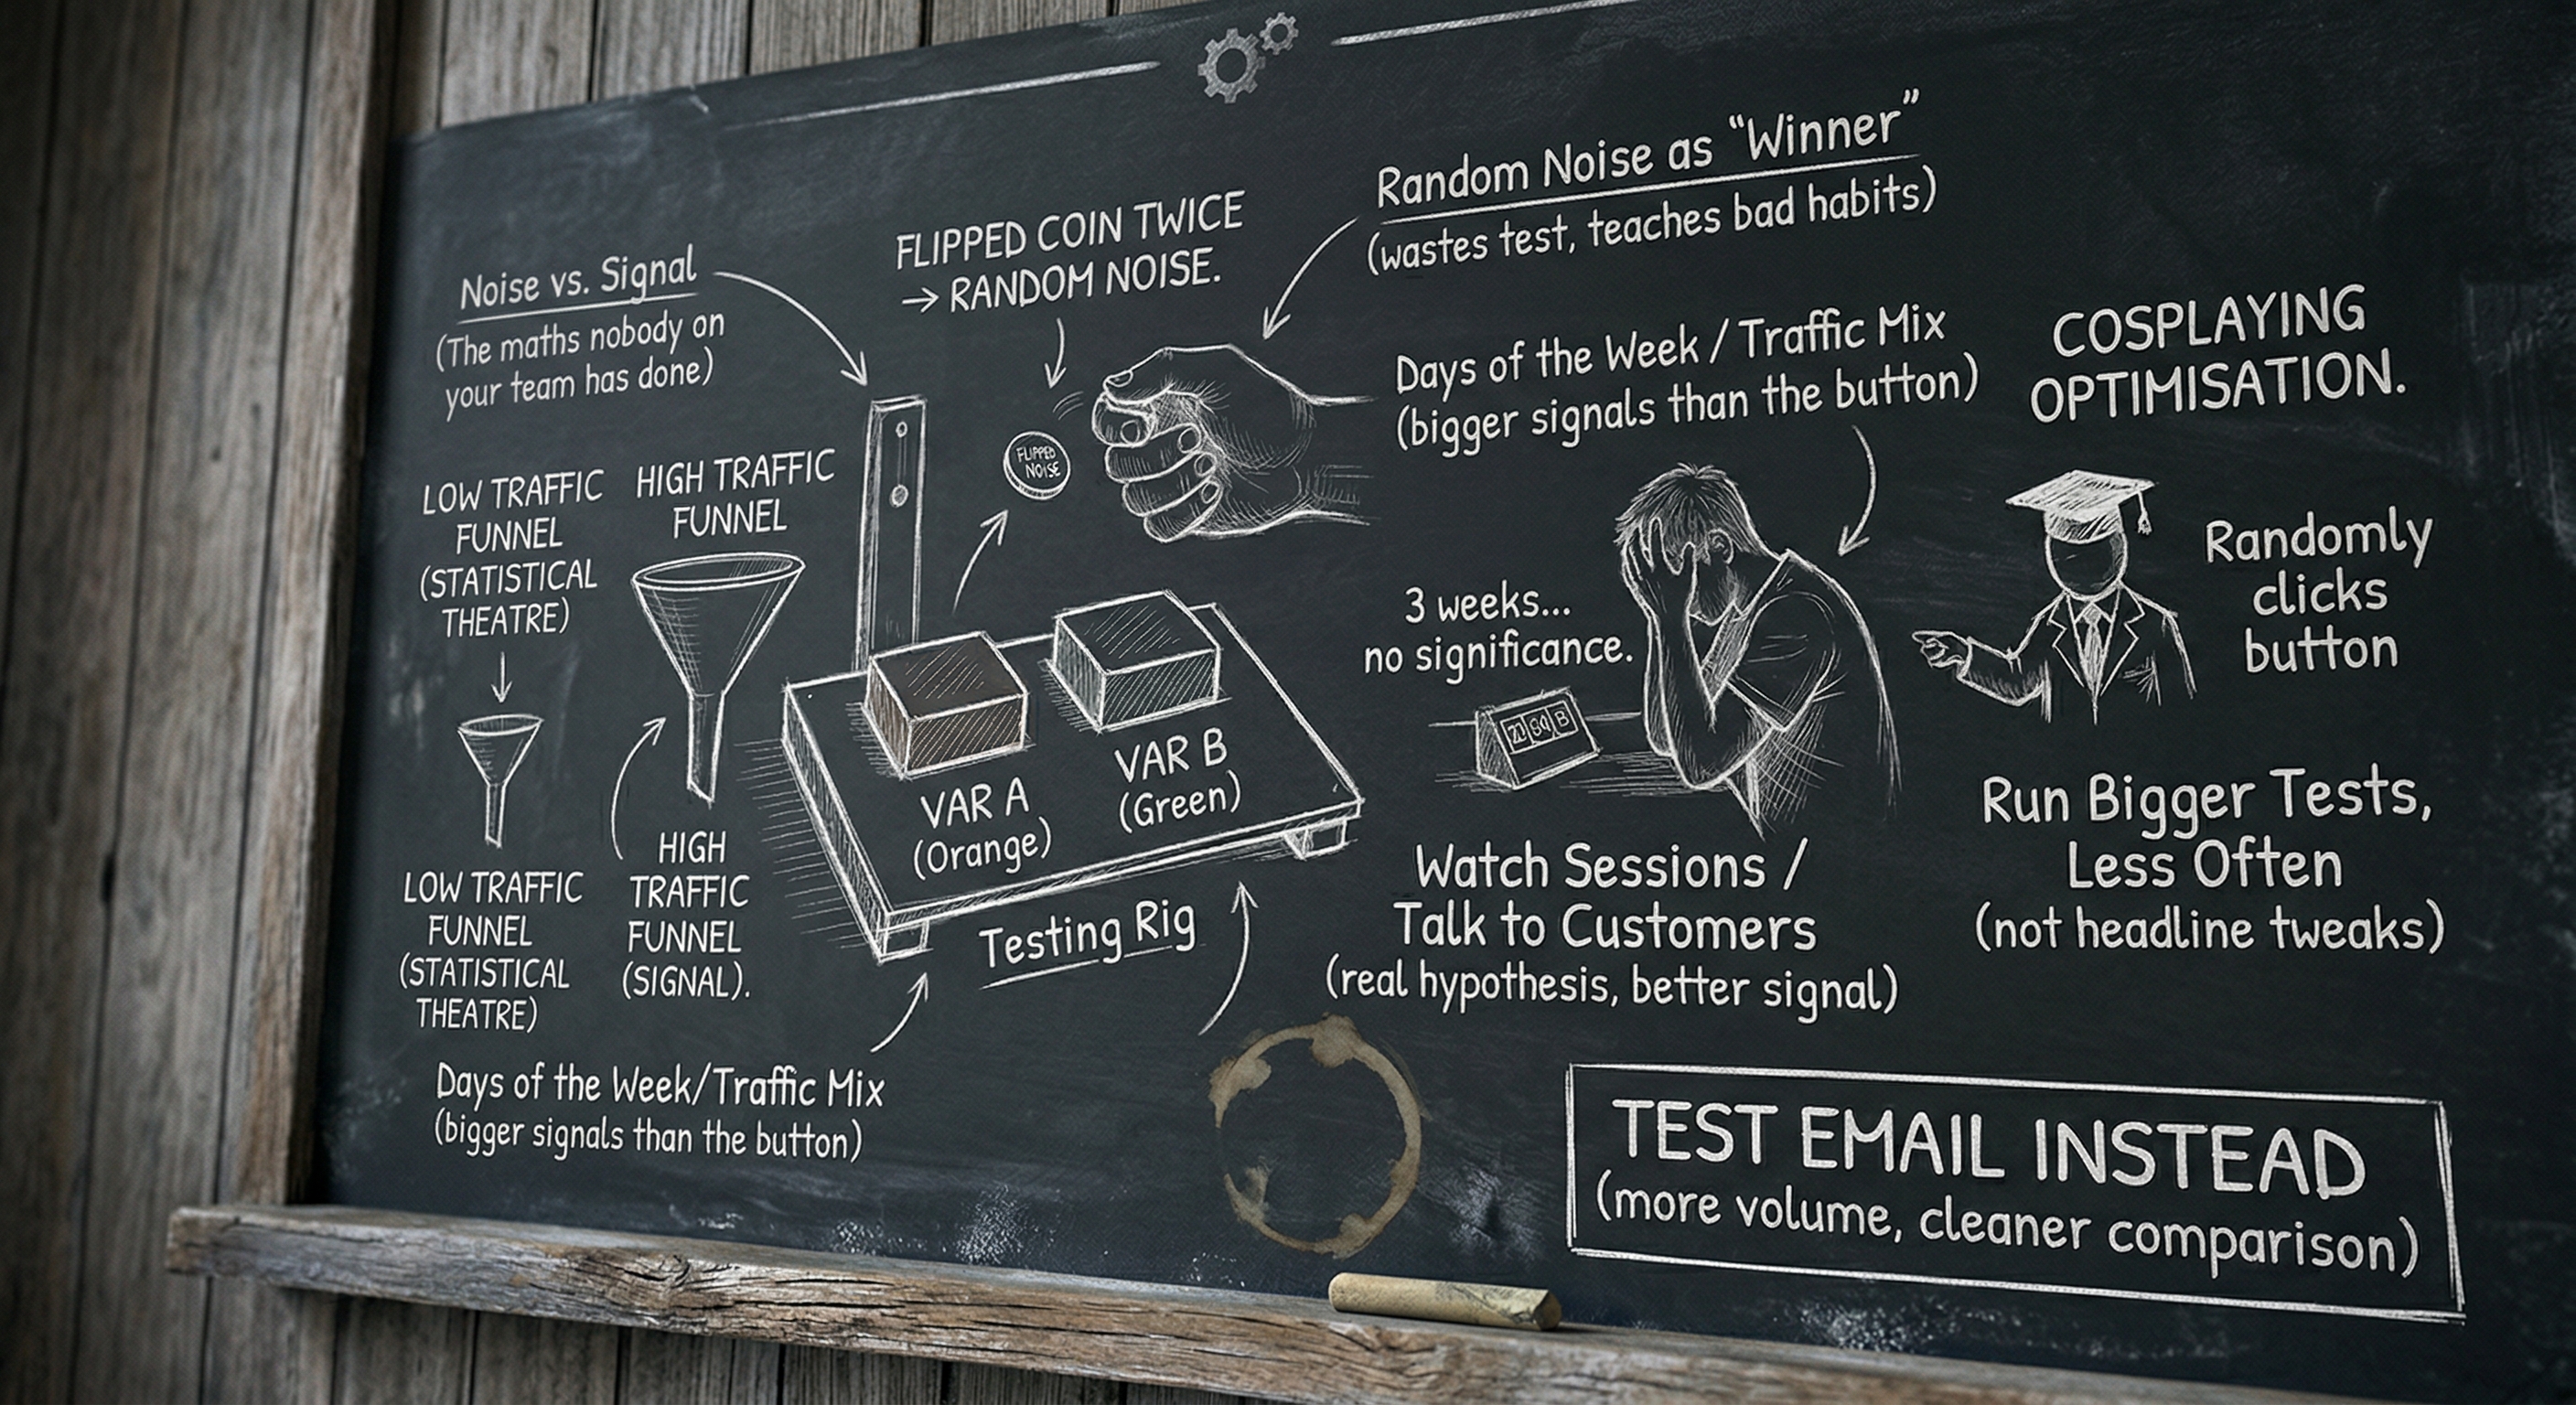 Noise vs. Signal
(The maths nobody on
your team has done)
FLIPPED COIN TWICE
→ RANDOM NOISE.
Random Noise as “Winner”
(wastes test, teaches bad habits)
Days of the Week / Traffic Mix
(bigger signals than the button)
COSPLAYING
OPTIMISATION.
LOW TRAFFIC
FUNNEL
(STATISTICAL
THEATRE)
HIGH TRAFFIC
FUNNEL
FLIPPED
NOISE
3 weeks...
no significance.
Randomly
clicks
button
VAR A
(Orange)
VAR B
(Green)
Testing Rig
LOW TRAFFIC
FUNNEL
(STATISTICAL
THEATRE)
HIGH
TRAFFIC
FUNNEL
(SIGNAL).
Watch Sessions /
Talk to Customers
(real hypothesis, better signal)
Run Bigger Tests,
Less Often
(not headline tweaks)
Days of the Week/Traffic Mix
(bigger signals than the button)
TEST EMAIL INSTEAD
(more volume, cleaner comparison)